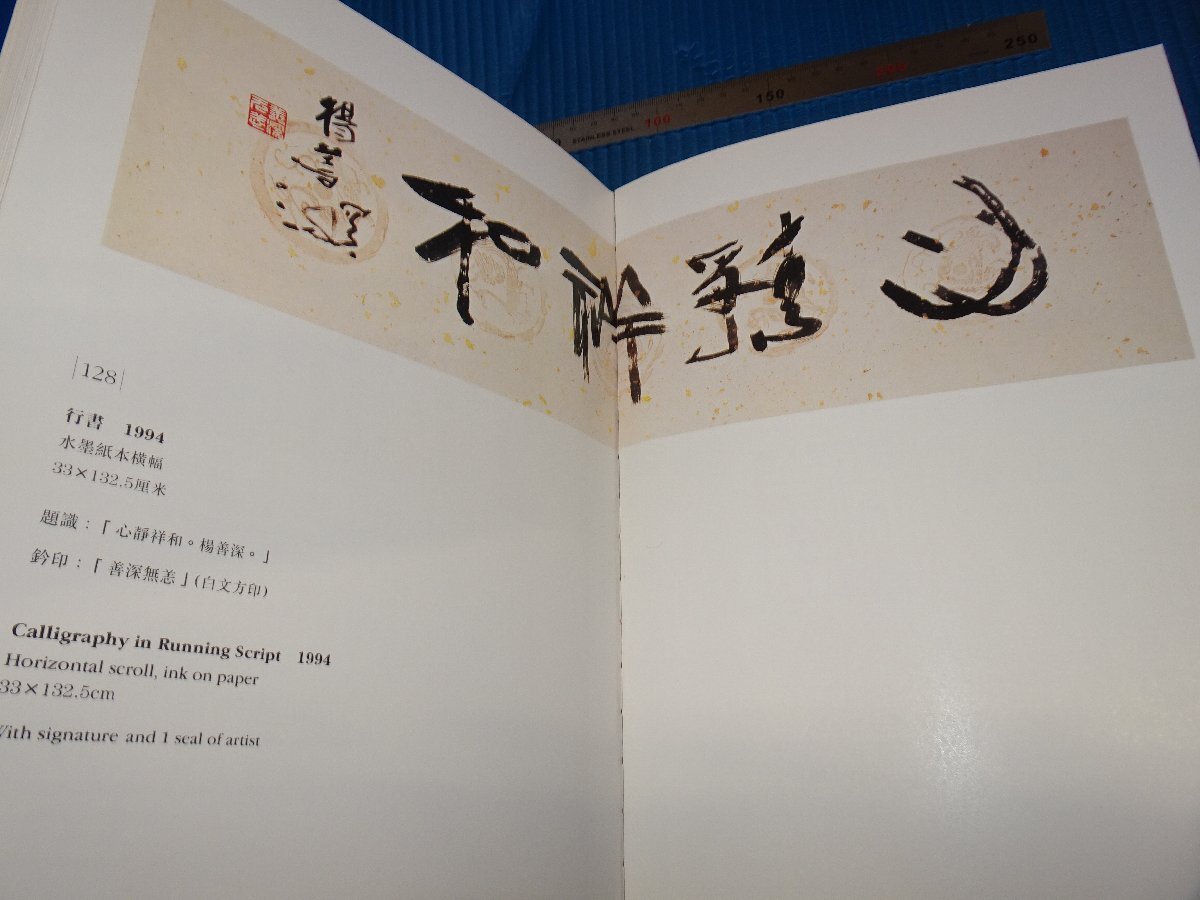 心靜祥和
楊善深
善深無恙
STAINLESS STEEL
100
150
200
250
|128|
行書 1994
水墨紙本橫幅
33×132.5厘米
題識：「心靜祥和。楊善深。」
鈐印：「善深無恙」(白文方印)
Calligraphy in Running Script 1994
Horizontal scroll, ink on paper
33×132.5cm
With signature and 1 seal of artist